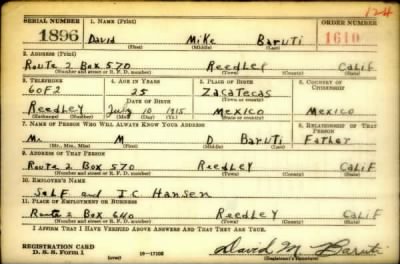 124
SERIAL NUMBER 1. NAME (Print) ORDER NUMBER
1896 David Mike Baruti 1610
(First) (Middle) (Last)
2. ADDRESS (Print)
Route 2 Box 570 Reedley Calif
(Number and street or R. F. D. number) (Town) (County) (State)
3. TELEPHONE 4. AGE IN YEARS 5. PLACE OF BIRTH 6. COUNTRY OF CITIZENSHIP
60F2 25 Zacatecas
DATE OF BIRTH (Town or county)
Reedley July 10 1915 Mexico Mexico
(Exchange) (Number) (Mo.) (Day) (Yr.) (State or country)
7. NAME OF PERSON WHO WILL ALWAYS KNOW YOUR ADDRESS 8. RELATIONSHIP OF THAT PERSON
Mr M D Baruti Father
(Mr., Mrs., Miss) (First) (Middle) (Last)
9. ADDRESS OF THAT PERSON
Route 2 Box 570 Reedley Calif
(Number and street or R. F. D. number) (Town) (County) (State)
10. EMPLOYER'S NAME
Self and I.C. Hansen
11. PLACE OF EMPLOYMENT OR BUSINESS
Route 2 Box 640 Reedley Calif
(Number and street or R. F. D. number) (Town) (County) (State)
I AFFIRM THAT I HAVE VERIFIED ABOVE ANSWERS AND THAT THEY ARE TRUE.
REGISTRATION CARD
D. S. S. Form 1 (over) David M Baruti
(Registrant's signature)